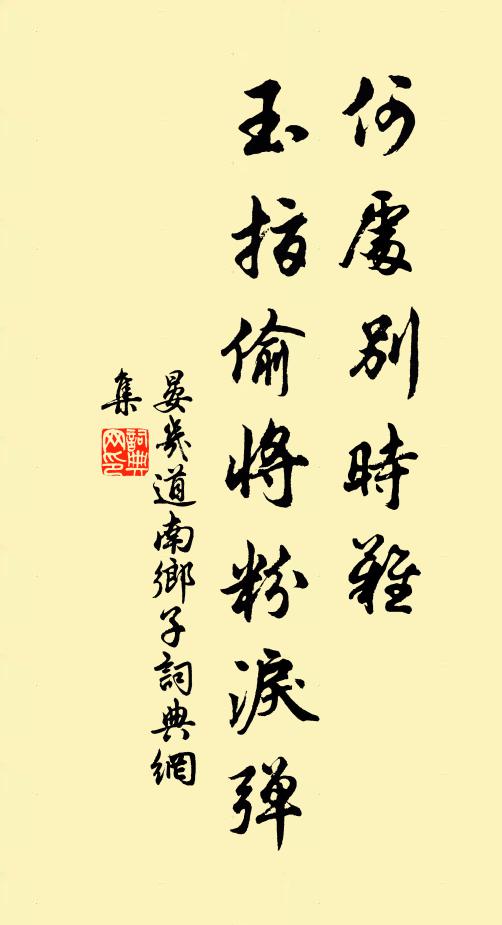 何處別時難
玉指偷將粉淚彈
晏幾道南鄉子詞典網
集
詞典網印